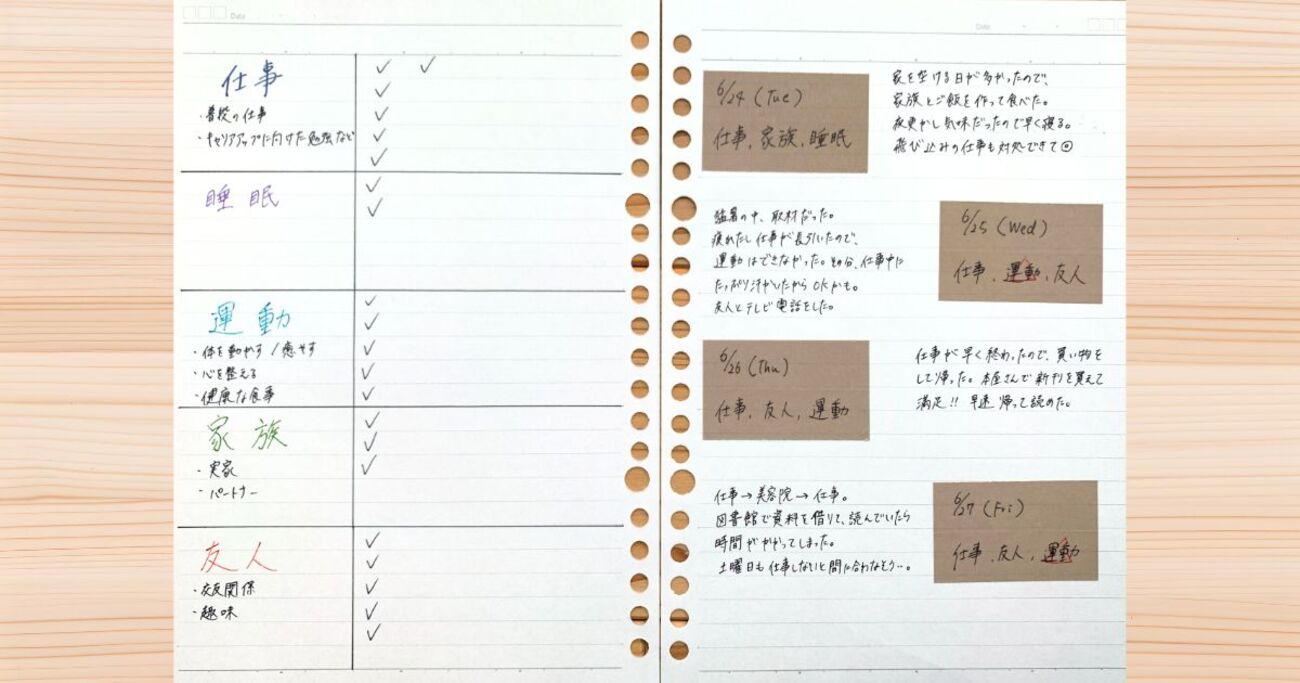 Date
仕事
・普段の仕事
・キャリアアップに向けた勉強など
睡眠
運動
・体を動かす/癒やす
・心を整える
・健康な食事
家族
・実家
・パートナー
友人
・交友関係
・趣味
Date
6/24(Tue)
仕事、家族、睡眠
家を空ける日が多かったので、
家族とご飯を作って食べた。
夜更かし気味だったので早く寝る。
飛び込みの仕事も対処できて◎
6/25(Wed)
仕事、運動、友人
猛暑の中、取材だった。
疲れたし仕事が長引いたので、
運動はできなかった。その分、仕事中に
たっぷり汗かいたからOKかも。
友人とテレビ電話をした。
6/26(Thu)
仕事、友人、運動
仕事が早く終わったので、買い物を
して帰った。本屋さんで新刊を買えて
満足!!早速帰って読めた。
6/27(Fri)
仕事、友人、運動
仕事→美容院→仕事。
図書館で資料を借りて、読んでいたら
時間がかかってしまった。
土曜日も仕事しないと間に合わなそう…。